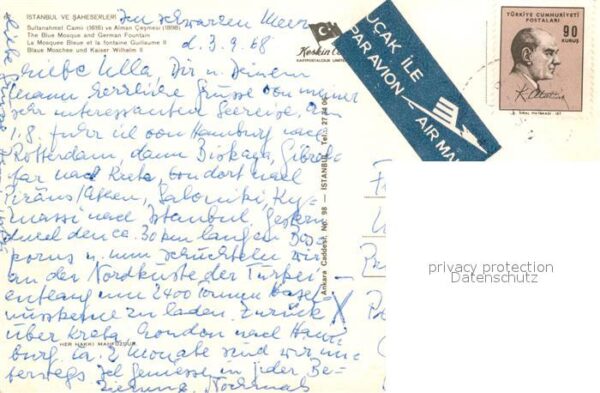 İSTANBUL VE ŞAHESERLERİ
Sultanahmet Camii (1616) ve Alman Çeşmesi (1898)
The Blue Mosque and German Fountain
La Mosquee Bleue et la fontaine Guillaume II
Blaue Moschee und Kaiser Wilhelm
Im schwarzen Meer
d. 3.9.68
Liebe Ulla, Dir u. Deinem
Mann herzliche Grüsse von meiner
sehr interessanten Seereise. Am
1.8. fuhr ich von Hamburg nach
Rotterdam, dann Biskaya, Gibral
tar nach Kreta, von dort nach
Piräus/Athen, Saloniki,
nach Istanbul. Gestern
durch den ca. 30 km langen Bos
porus u. nun schuckeln wir
an der Nordküste der Türkei
entlang um 2400 Tonnen Hasel
nusskerne zu laden. Zurück
über Kreta, London nach Ham
burg. Ca. 2 Monate sind wir un
terwegs. Ich geniesse in jeder Be
ziehung. Nochmals
HER HAKKI MAHFUZDUR
Keskin
Ankara Caddesi, No. 98 — İSTANBUL
UÇAK İLE
PAR AVION - AIR MAIL
TÜRKİYE CUMHURİYETİ
POSTALARI
90
KURUŞ
K. Atatürk
privacy protection
Datenschutz